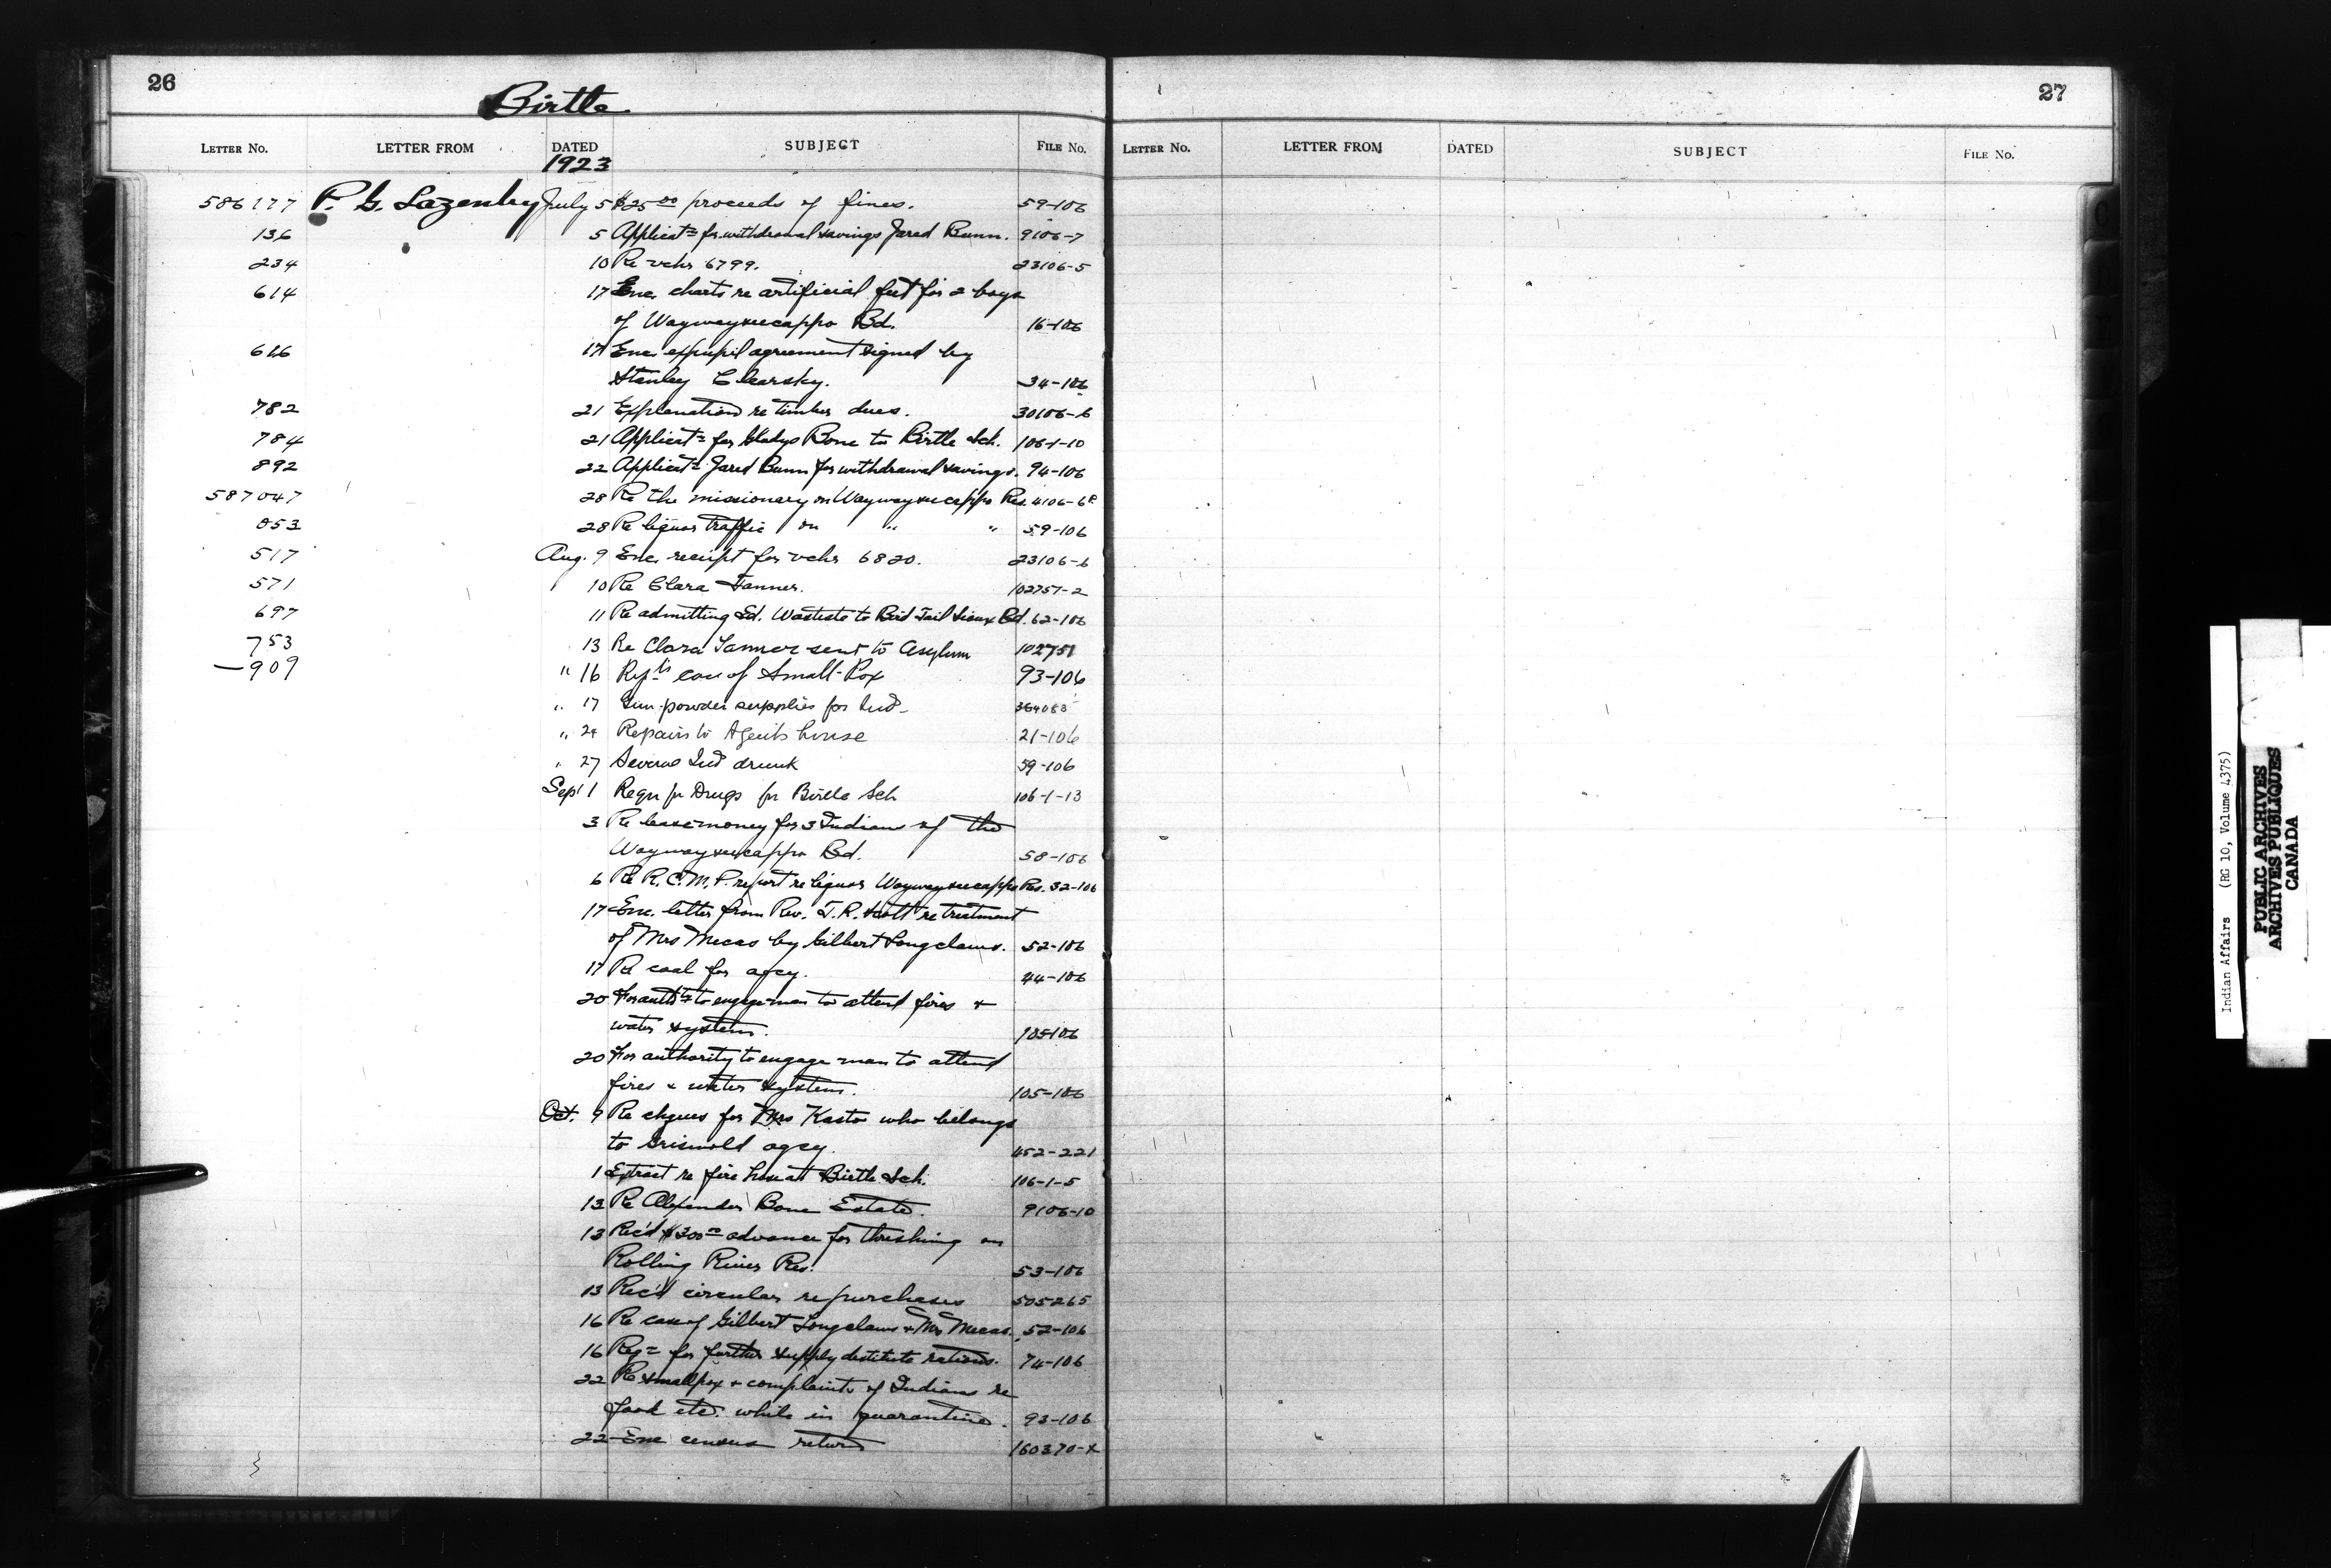 26
Birtle
LETTER No. LETTER FROM DATED SUBJECT FILE No.
1923
586177 P. G. Lazenby July 5 $25.00 proceeds of fines. 59-106
136 5 Applicatn for withdrawal savings Jared Bunn. 9106-7
234 10 Re vchr 6799. 23106-5
614 17 Enc. charts re artificial feet for 2 boys
of Waywayseecappo Bd. 16-106
666 17 Enc. expupil agreement signed by
Stanley Clearsky. 34-106
782 21 Explanation re timber dues. 30106-6
784 21 Applicatn for Gladys Bone to Birtle Sch. 106-1-10
892 22 Applicatn Jared Bunn for withdrawal savings. 94-106
587047 28 Re the missionary on Waywayseecappo Res. 4106-6
053 28 Re liquor traffic on " " 59-106
517 Aug. 9 Enc. receipt for vchr 6820. 23106-6
571 10 Re Clara Tanner. 102751-2
697 11 Re admitting Ed. Wasteste to Bird Tail Sioux Bd. 62-106
753 13 Re Clara Tanner sent to Asylum 102751
—909 " 16 Rep'ts case of Small-Pox 93-106
" 17 Gun-powder supplies for Ind-
" 24 Repairs to Agent's house 21-106
" 27 Several Ind drunk 59-106
Sep't 1 Reqn for Drugs for Birtle Sch 106-1-13
3 Re lease money for 3 Indians of the
Waywayseecappo Bd. 58-106
6 Re R.C.M.P. report re liquor Waywayseecappo Res. 32-106
17 Enc. letter from Rev. T.R. Scott re treatment
of Mrs Mecas by Gilbert Longclaws. 52-106
17 Re coal for agcy. 44-106
20 For auth'ty to engage man to attend fires &
water system. 105-106
20 For authority to engage man to attend
fires & water system. 105-106
Oct. 9 Re cheques for Mrs Kasto who belongs
to Griswold agcy. 452-221
1 Extract re fire hose at Birtle Sch. 106-1-5
13 Re Alexander Bone Estate. 9106-10
13 Rec'd $300.00 advance for threshing on
Rolling River Res. 53-106
13 Rec'd circular re purchases 505265
16 Re case of Gilbert Longclaws & Mrs Mecas. 52-106
16 Reqn for further supply destitute rations. 74-106
22 Re smallpox & complaints of Indians re
food etc. while in quarantine. 93-106
22 Enc census return 160370-X
27
LETTER No. LETTER FROM DATED SUBJECT FILE No.
Indian Affairs (RG 10, Volume 4375)
PUBLIC ARCHIVES
ARCHIVES PUBLIQUES
CANADA